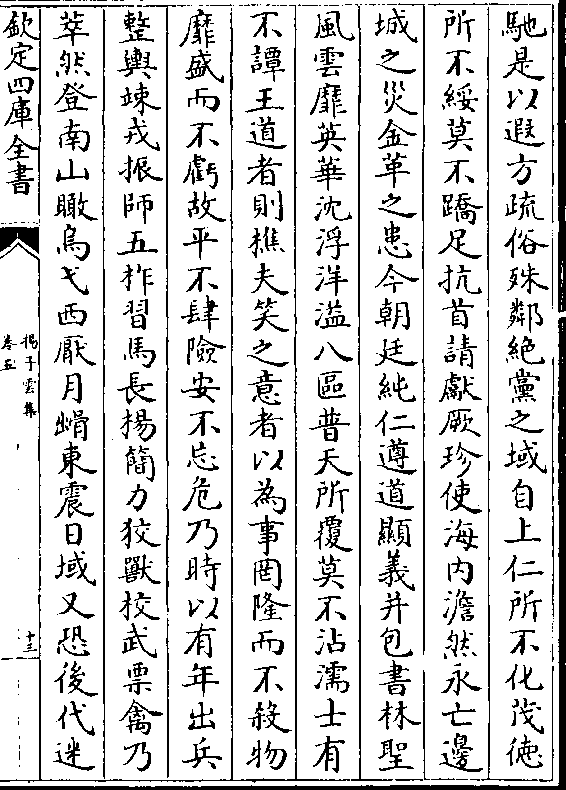 馳是以遐方疏俗殊鄰絶黨之域自上仁所不化茂徳
所不綏莫不蹻足抗首請獻厥珍使海内澹然永亡邊
城之災金革之患今朝廷純仁遵道顯義并包書林聖
風雲靡英華沈浮洋溢八區普天所覆莫不沾濡士有
不譚王道者則樵夫笑之意者以為事罔隆而不殺物
靡盛而不虧故平不肆險安不忘危乃時以有年出兵
整輿竦戎振師五柞習馬長楊簡力狡獸校武票禽乃
萃然登南山瞰烏弋西厭月𡺾東震日域又恐後代迷
欽定四庫全書
揚子雲集
卷五
十三